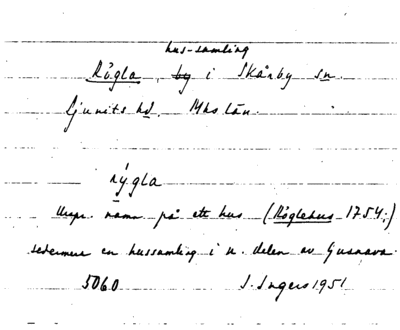 hus-samling
Rögla, by i Skårby sn.
Ljunits hd. Mhs län.
rýgla
Urspr. namn på ett hus (Röglehus 1754;)
sedermera en hussamling i n. delen av Gusnava.
5060 I. Ingers 1951